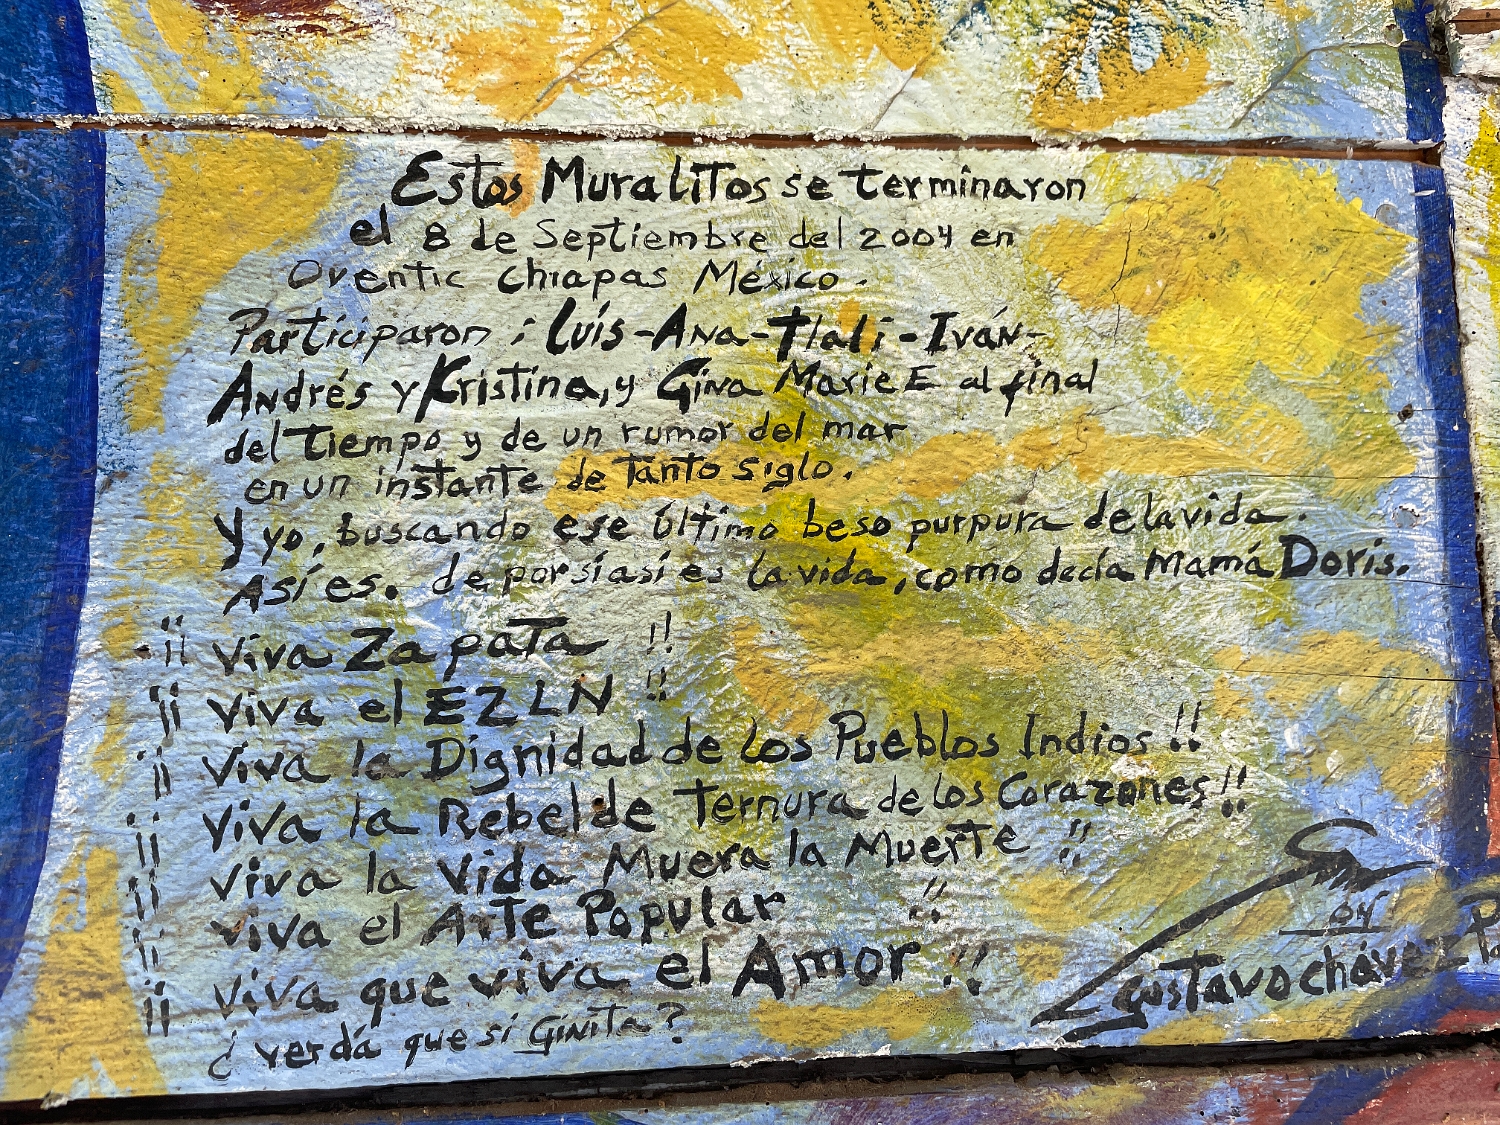 Estos Muralitos se terminaron
el 8 de Septiembre del 2004 en
Oventic Chiapas México.
Participaron : Luís - Ana - Tlali - Iván -
Andrés y Kristina, y Gina Marie E al final
del tiempo y de un rumor del mar
en un instante de tanto siglo.
Y yo, buscando ese último beso purpura de la vida.
Así es. de por sí así es la vida, como decía Mamá Doris.
¡¡ Viva Zapata !!
¡¡ Viva el EZLN !!
¡¡ Viva la Dignidad de los Pueblos Indios !!
¡¡ Viva la Rebelde Ternura de los Corazones !!
¡¡ Viva la Vida Muera la Muerte !!
¡¡ Viva el Arte Popular !!
¡¡ Viva que viva el Amor !!
¿ verdá que si Ginita ?
04
Gustavo Chávez